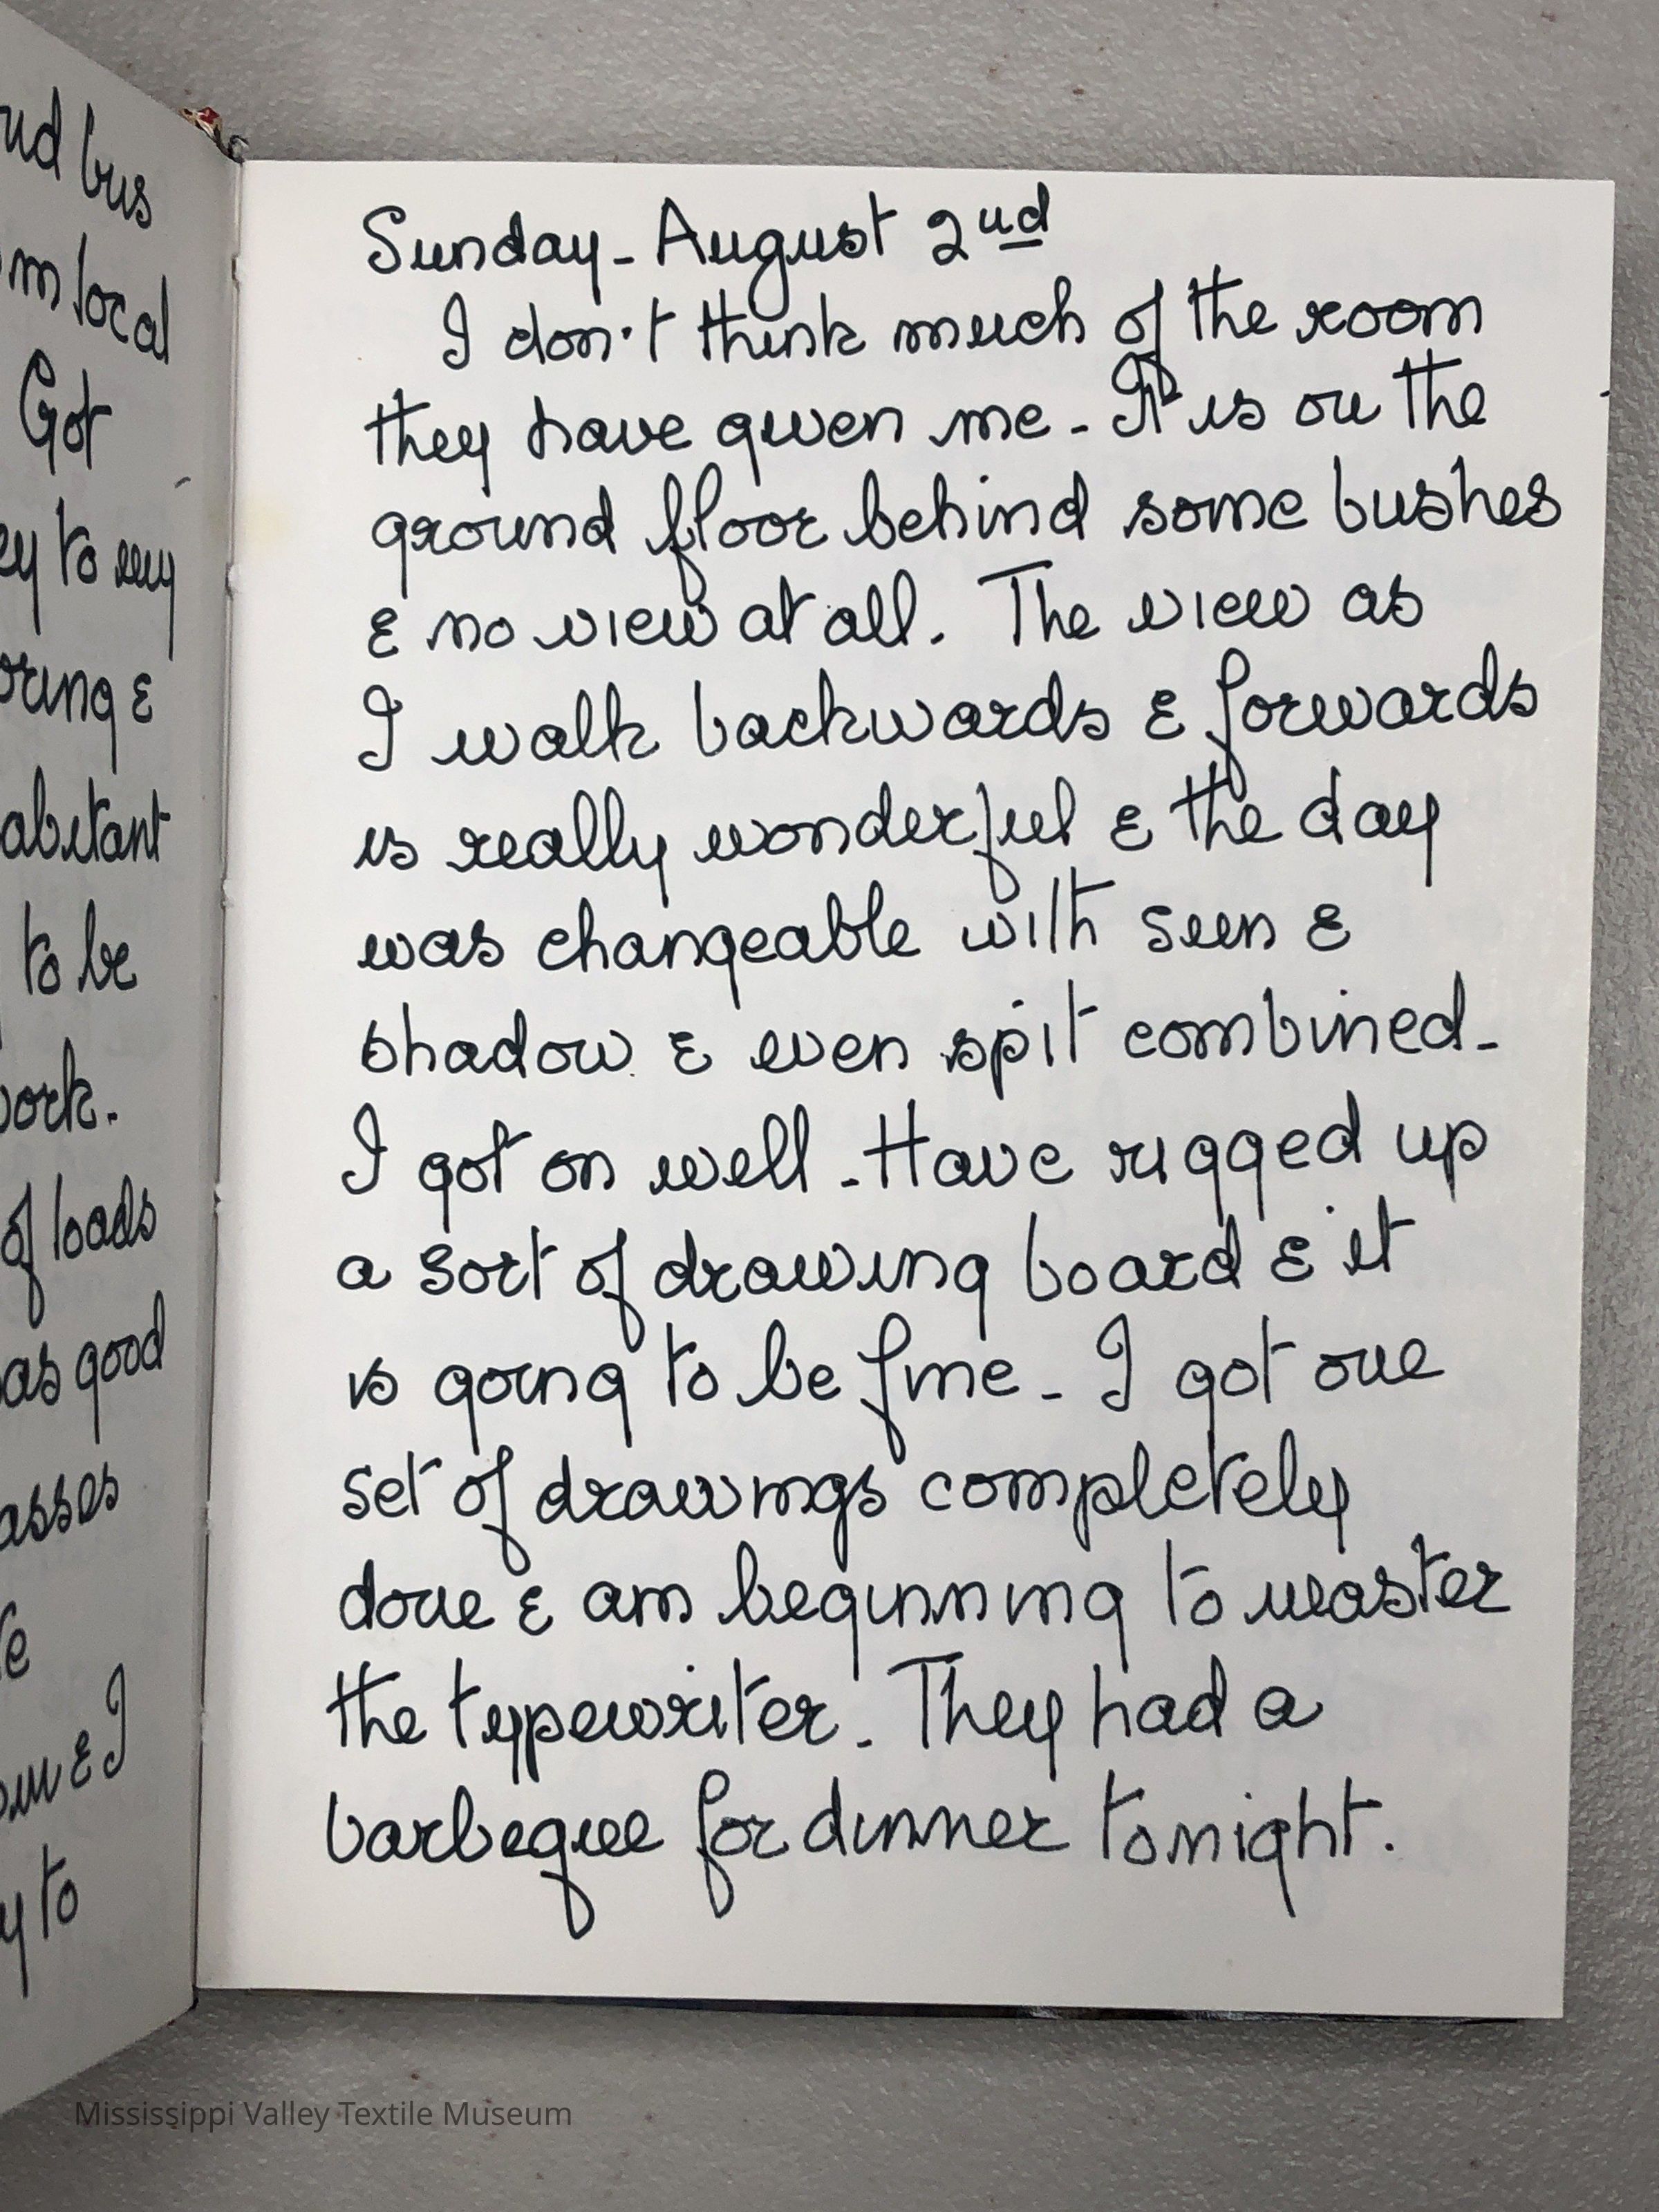 ud bus
m local
Got
ey to my
oring &
abitant
to be
ork.
of loads
as good
asses
& I
y to
Sunday - August 2nd
I don't think much of the room
they have given me - It is on the
ground floor behind some bushes
& no view at all. The view as
I walk backwards & forwards
is really wonderful & the day
was changeable with sun &
shadow & even spit combined -
I got on well - Have rigged up
a sort of drawing board & it
is going to be fine - I got one
set of drawings completely
done & am beginning to master
the typewriter. They had a
barbeque for dinner tonight.
Mississippi Valley Textile Museum